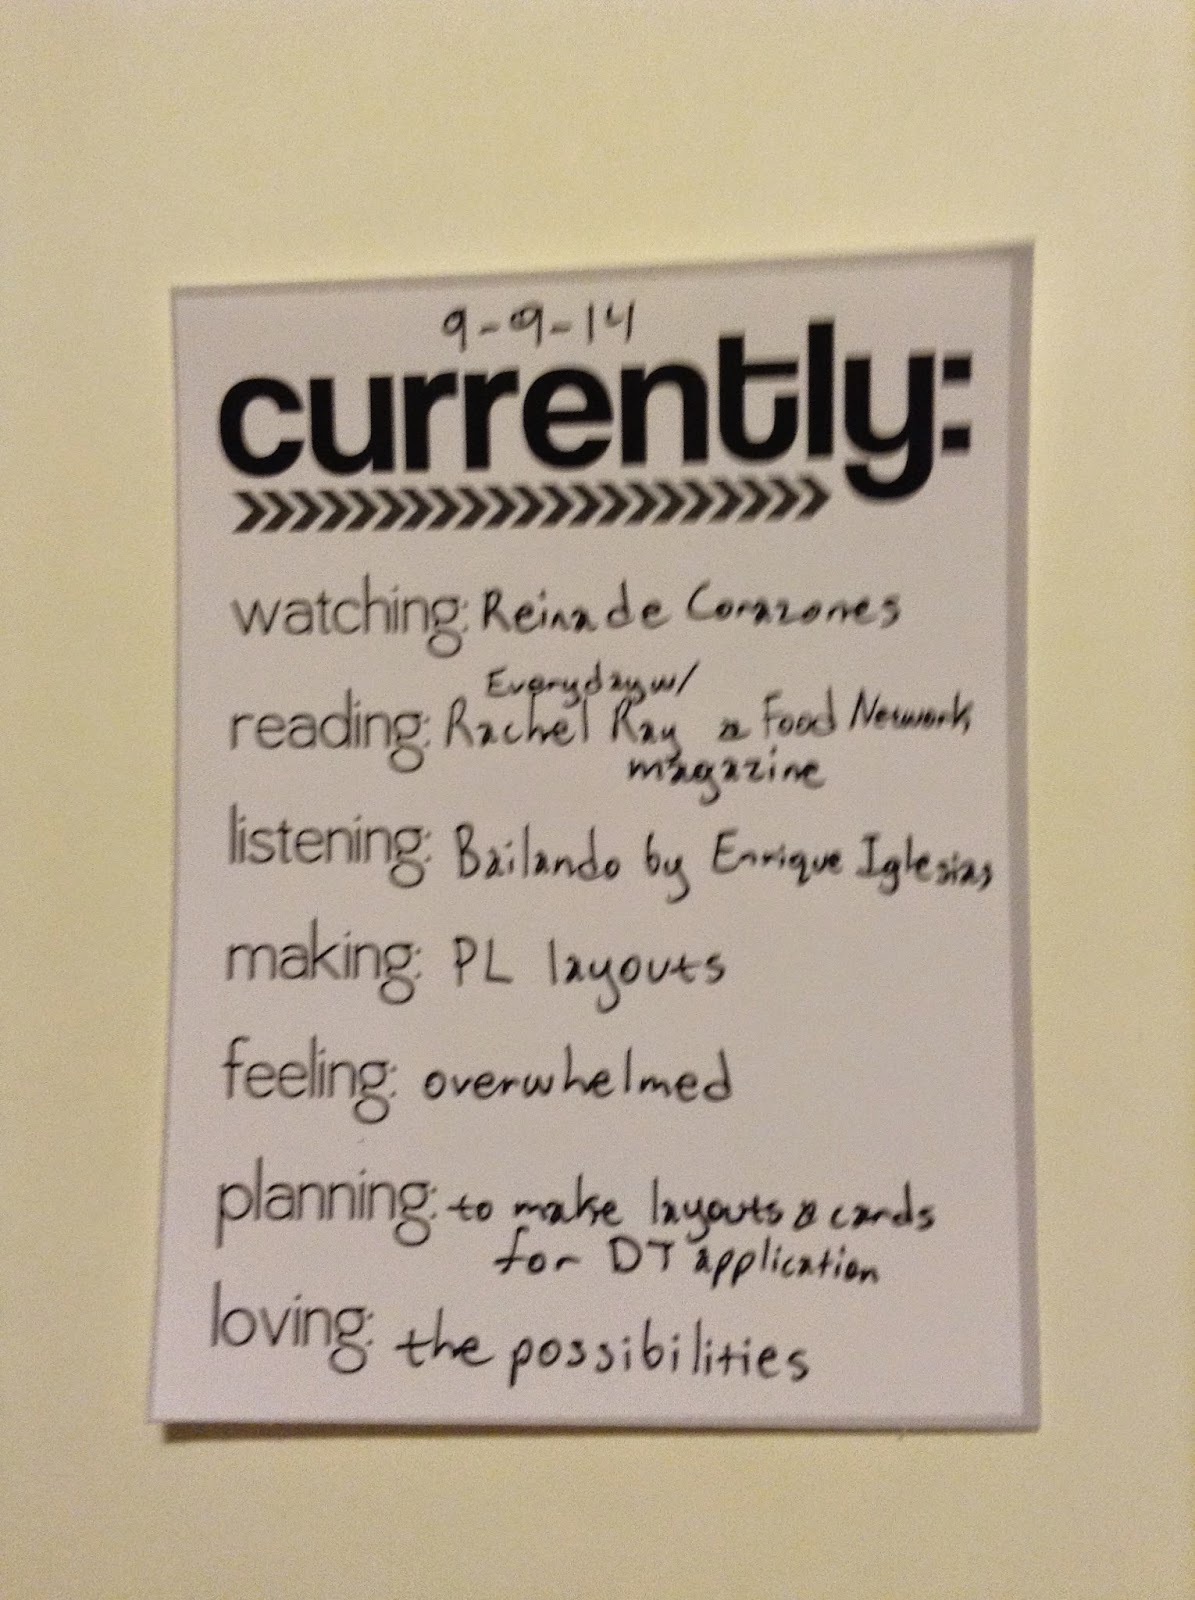 9-9-14
currently:
watching: Reina de Corazones
Everyday w/
reading: Rachel Ray & Food Network
magazine
listening: Bailando by Enrique Iglesias
making: PL layouts
feeling: overwhelmed
planning: to make layouts & cards
for DT application
loving: the possibilities